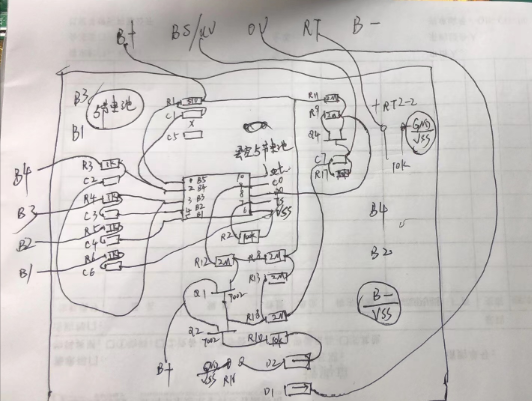 B+ BS/UV OV RT B-
B3
5节电池
B1
R1 510
C1
X
C5
R11 2M
R9 2M
Q4
C7
R17
+RT2-2
GND
VSS
10K
B4
R3 1K
C2
R4 1K
B3
C3
R5 1K
B2
C4
R6 1K
B1
C6
1 B5
2 B4
3 B3
B2
B1
10
9
8
7
6
5节电池
CO
DO
TS
VSS
R2
B4
B2
R12 2M
2M
R13
Q1
7002
Q2
7002
R18 2M
10K
B+
GND
VSS
D2
D1
B-
VSS